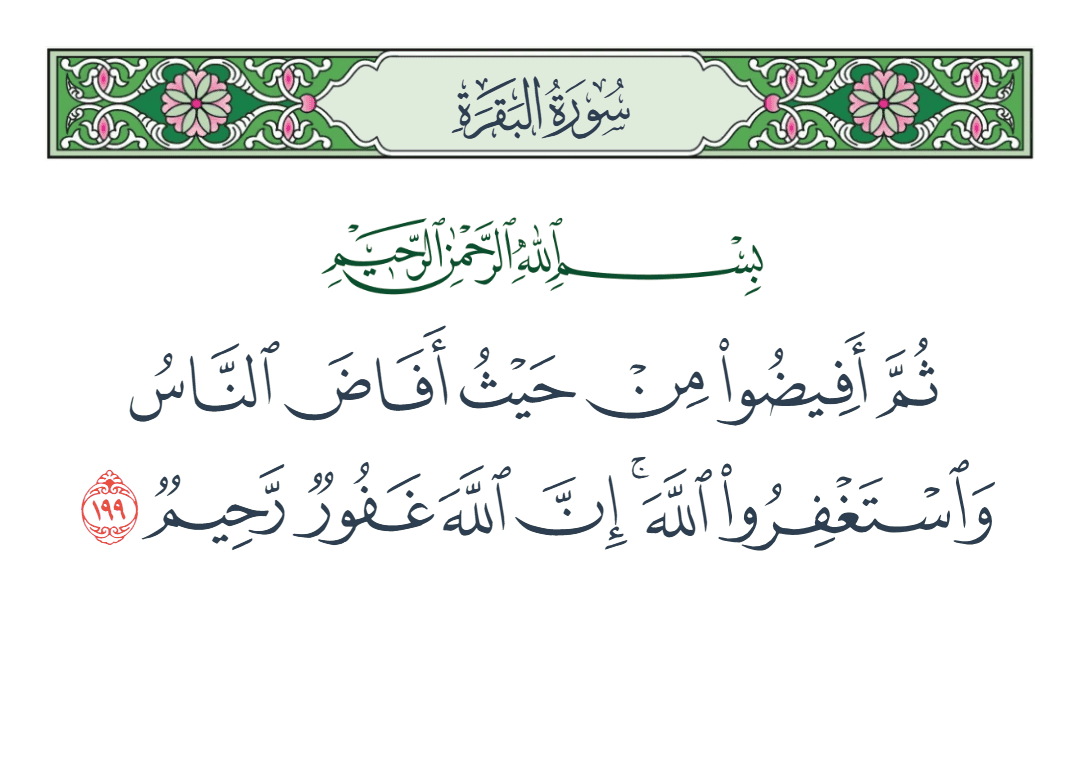 سُورَةُ البَقَرَةِ
بِسْمِ ٱللَّهِ ٱلرَّحْمَٰنِ ٱلرَّحِيمِ
ثُمَّ أَفِيضُوا۟ مِنْ حَيْثُ أَفَاضَ ٱلنَّاسُ
وَٱسْتَغْفِرُوا۟ ٱللَّهَ ۚ إِنَّ ٱللَّهَ غَفُورٌ رَّحِيمٌ ١٩٩